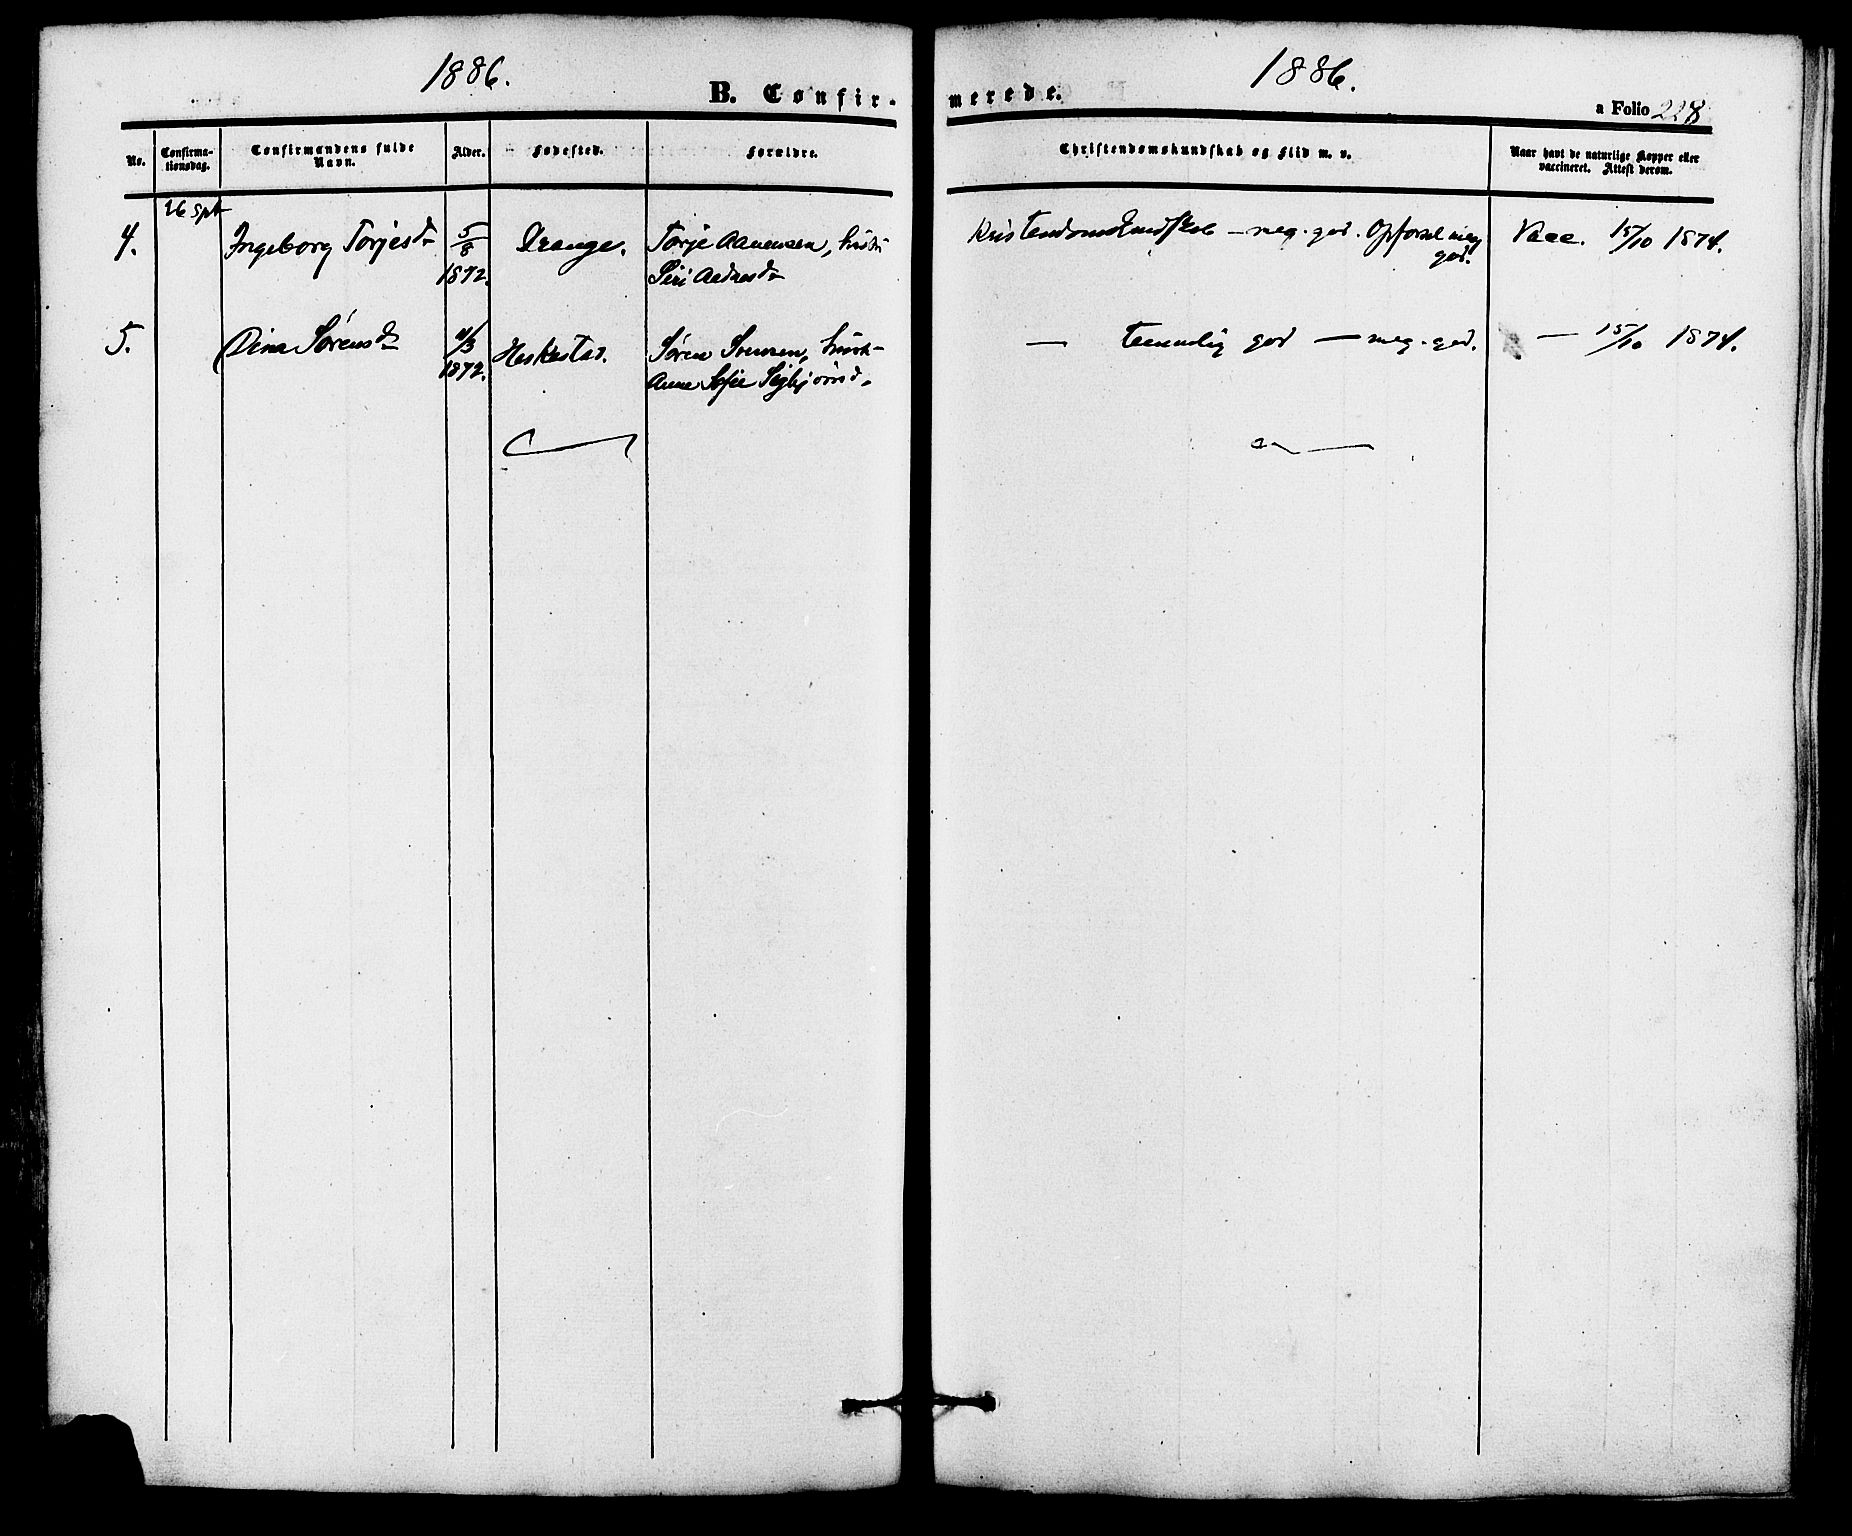 1886.
B. Confir-
No.
Confirma-
tionsdag.
Confirmandens fulde
Navn.
Alder.
Fødested.
Forældre.
26 Spt
4.
Ingeborg Torjesd
5/8
1872.
Drange.
Torje Aanensen, hustr
Siri Aadnesd
5.
Dina Sørensd
4/3
1872.
Heskestad.
Søren Svensen, hustr
Anne Sofie Sigbjørnsd.
1886.
merede.
a Folio 228
Christendomskundskab og Flid m. v.
Naar havt de naturlige Kopper eller
vaccineret. Attest derom.
Kristendomskundskab – meg. god. Opførsel meg
god.
Vacc. 15/10 1874.
— temmelig god — meg. god.
— 15/10 1874.